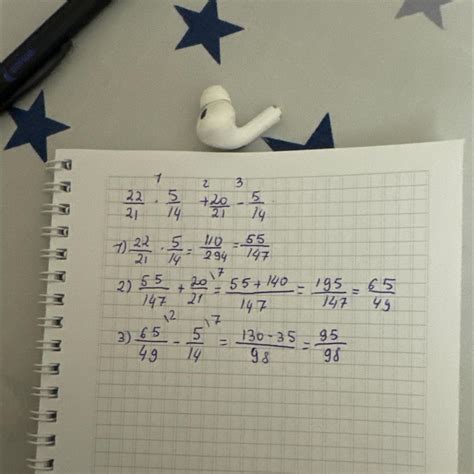 1 2 3
22/21 · 5/14 + 20/21 - 5/14
1) 22/21 · 5/14 = 110/294 = 55/147
2) 55/147 + 20/21 \7 = 55+140/147 = 195/147 = 65/49
3) 65/49 \2 - 5/14 \7 = 130-35/98 = 95/98